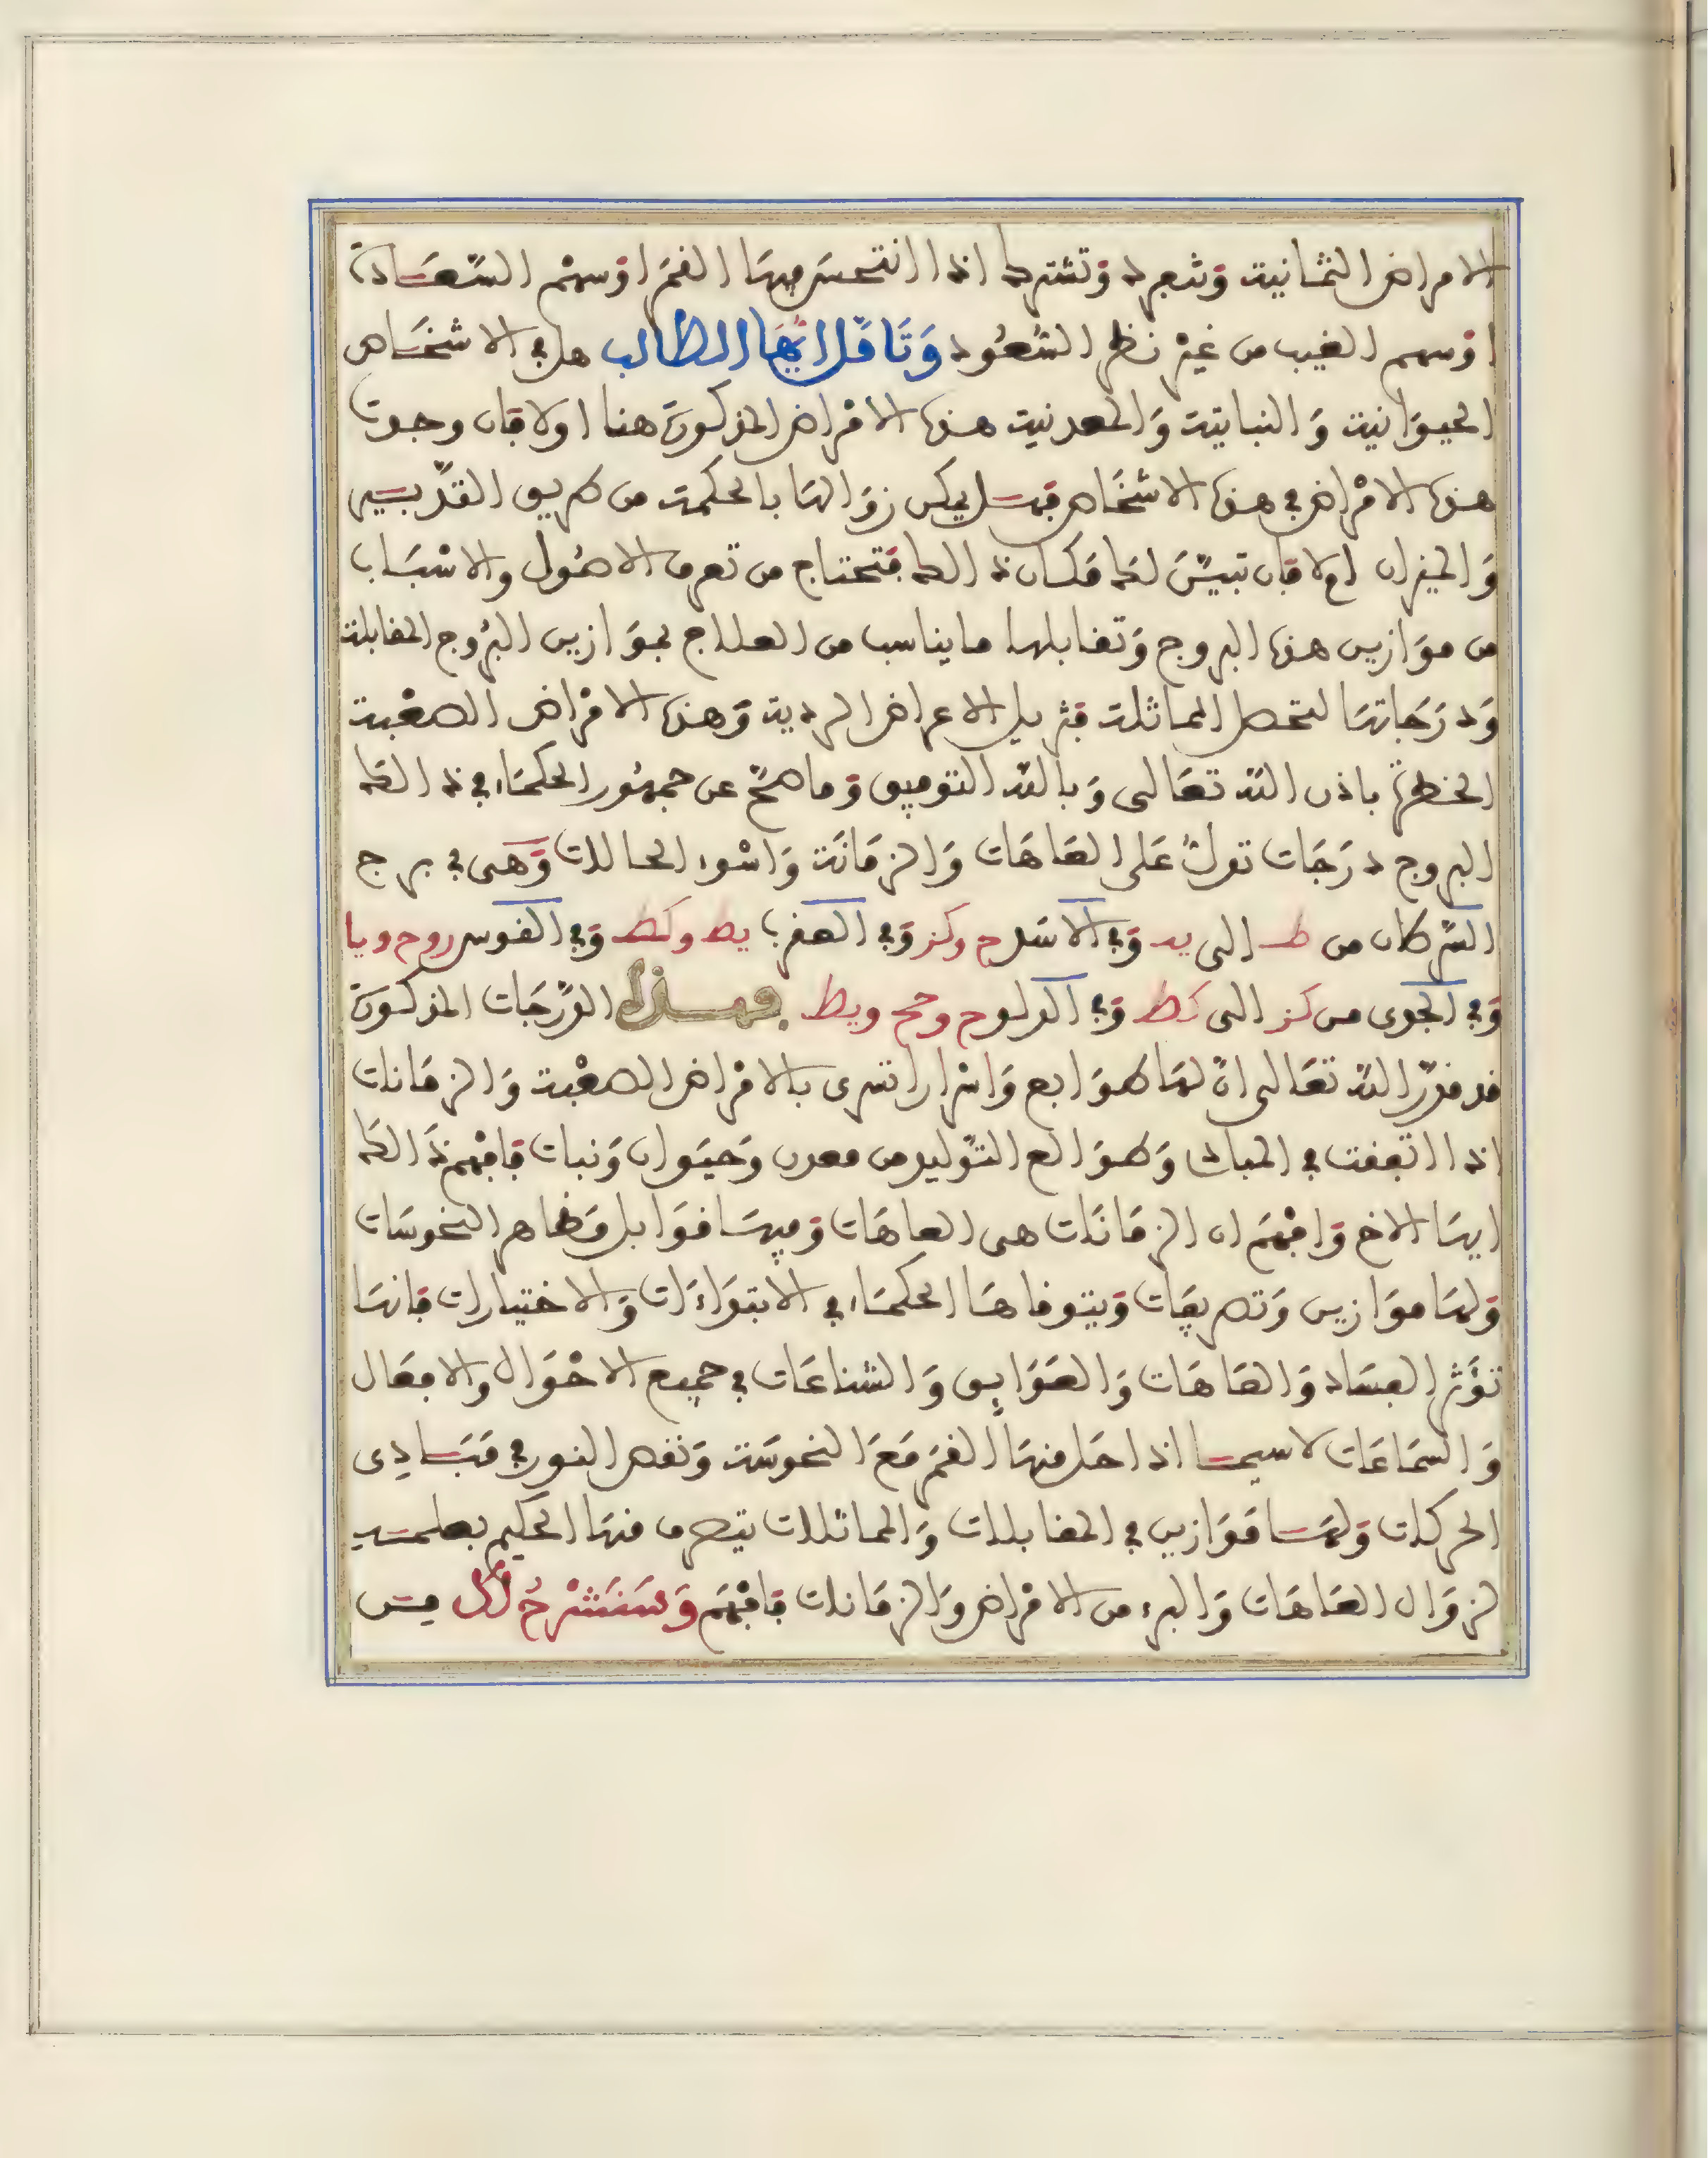 الامراض الثمانية وتنعرد وتشترط اذا انتحس فيها القمر او سهم السعادة
او سهم الغيب من غير نظر السعود وتامل ايها الطالب هل في الاشخاص
الحيوانية والنباتية والمعدنية هذه الامراض المذكورة هنا او لا فان وجدت
هذه الامراض في هذه الاشخاص فهل يمكن زوالها بالحكمة من طريق التدبير
والميزان او لا فان تبين لك مكان ذالك فتحتاج من تعرف الاصول والاسباب
من موازين هذه البروج وتقابلها ما يناسب من العلاج بموازين البروج المقابلة
ودرجاتها لتحصل المماثلة فتزيل الاعراض الردية وهذه الامراض الصعبة
الخطرة باذن الله تعالى وبالله التوفيق وما صح عن جمهور الحكماء في ذالك
البروج درجات تدل على العاهات والزمانة واسوء الحالات وهى في برج
السرطان من ط الى يد وفي الاسد ح وكز وفي العقرب يط وكط وفي القوس وح ويا
وفي الجدى من كز الى كط وفي الدلو ح وحح ويط فهذه الدرجات المذكورة
قد قدر الله تعالى ان لها طوابع واسرارا تسرى بالامراض الصعبة والزمانات
اذا اتفقت في المبادئ وطوالع التوليد من معدن وحيوان ونبات فافهم ذالك
ايها الاخ وافهم ان الزمانات هى العاهات وفيها قوابل مظاهر النحوسات
ولها موازين وتصريفات ويتوقاها الحكماء في الابتداءات والاختيارات فانها
تؤثر الفساد والعاهات والعوايق والشناعات في جميع الاحوال والافعال
والساعات لا سيما اذا حل منها القمر مع النحوسة ونقص النور في مبادى
الحركات ولها موازين في المقابلات والمماثلات يتصرف منها الحكيم بعلمه
لزوال العاهات والبرء من الامراض والزمانات فافهم وسنشرح لك من